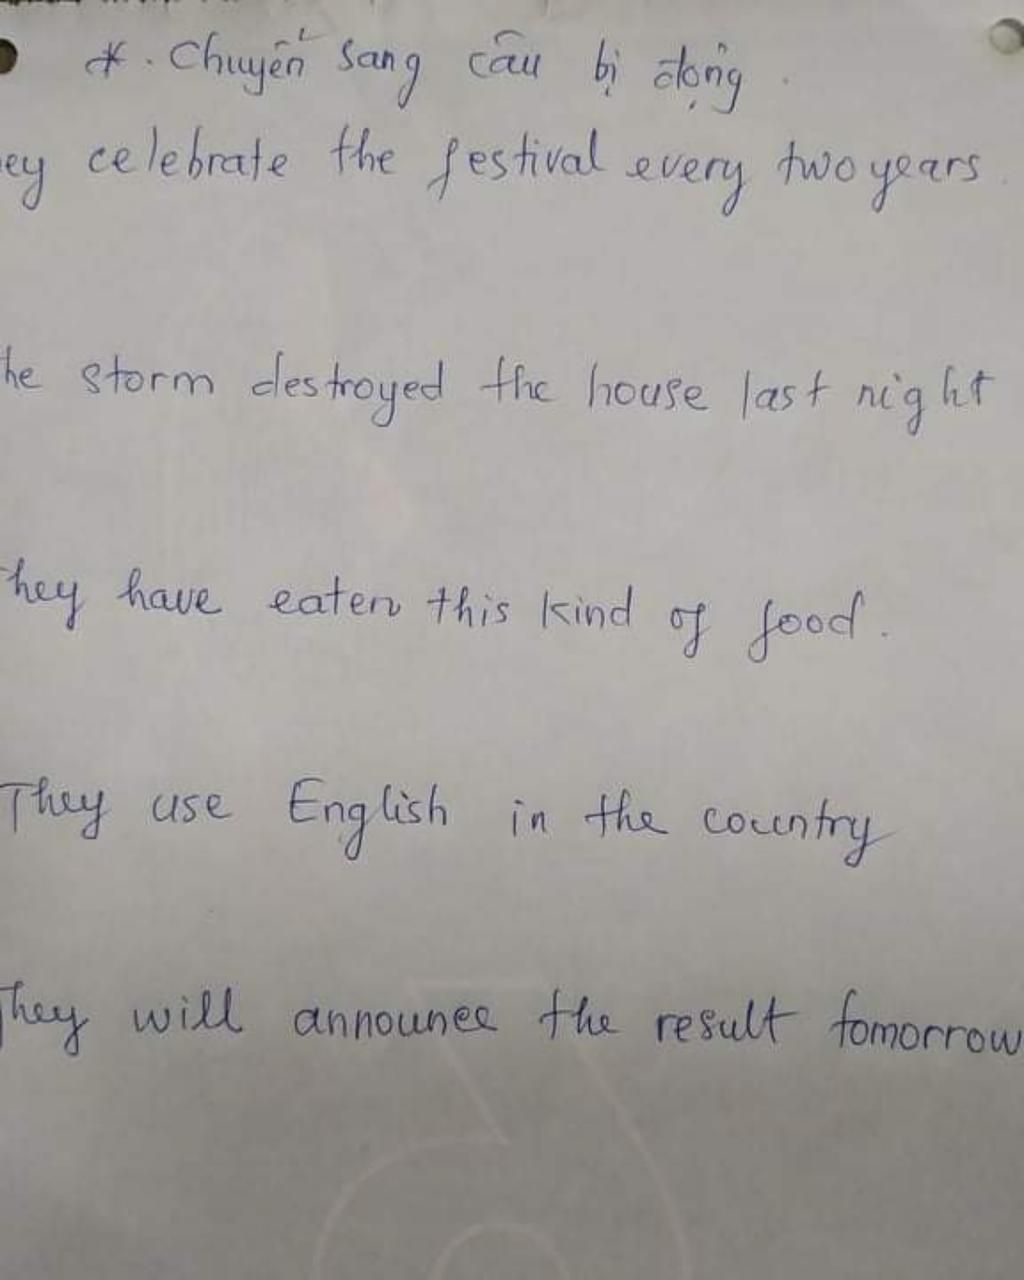 *. Chuyển sang câu bị động.
ey celebrate the festival every two years.
he storm destroyed the house last night
hey have eaten this kind of food.
They use English in the country
They will announce the result tomorrow